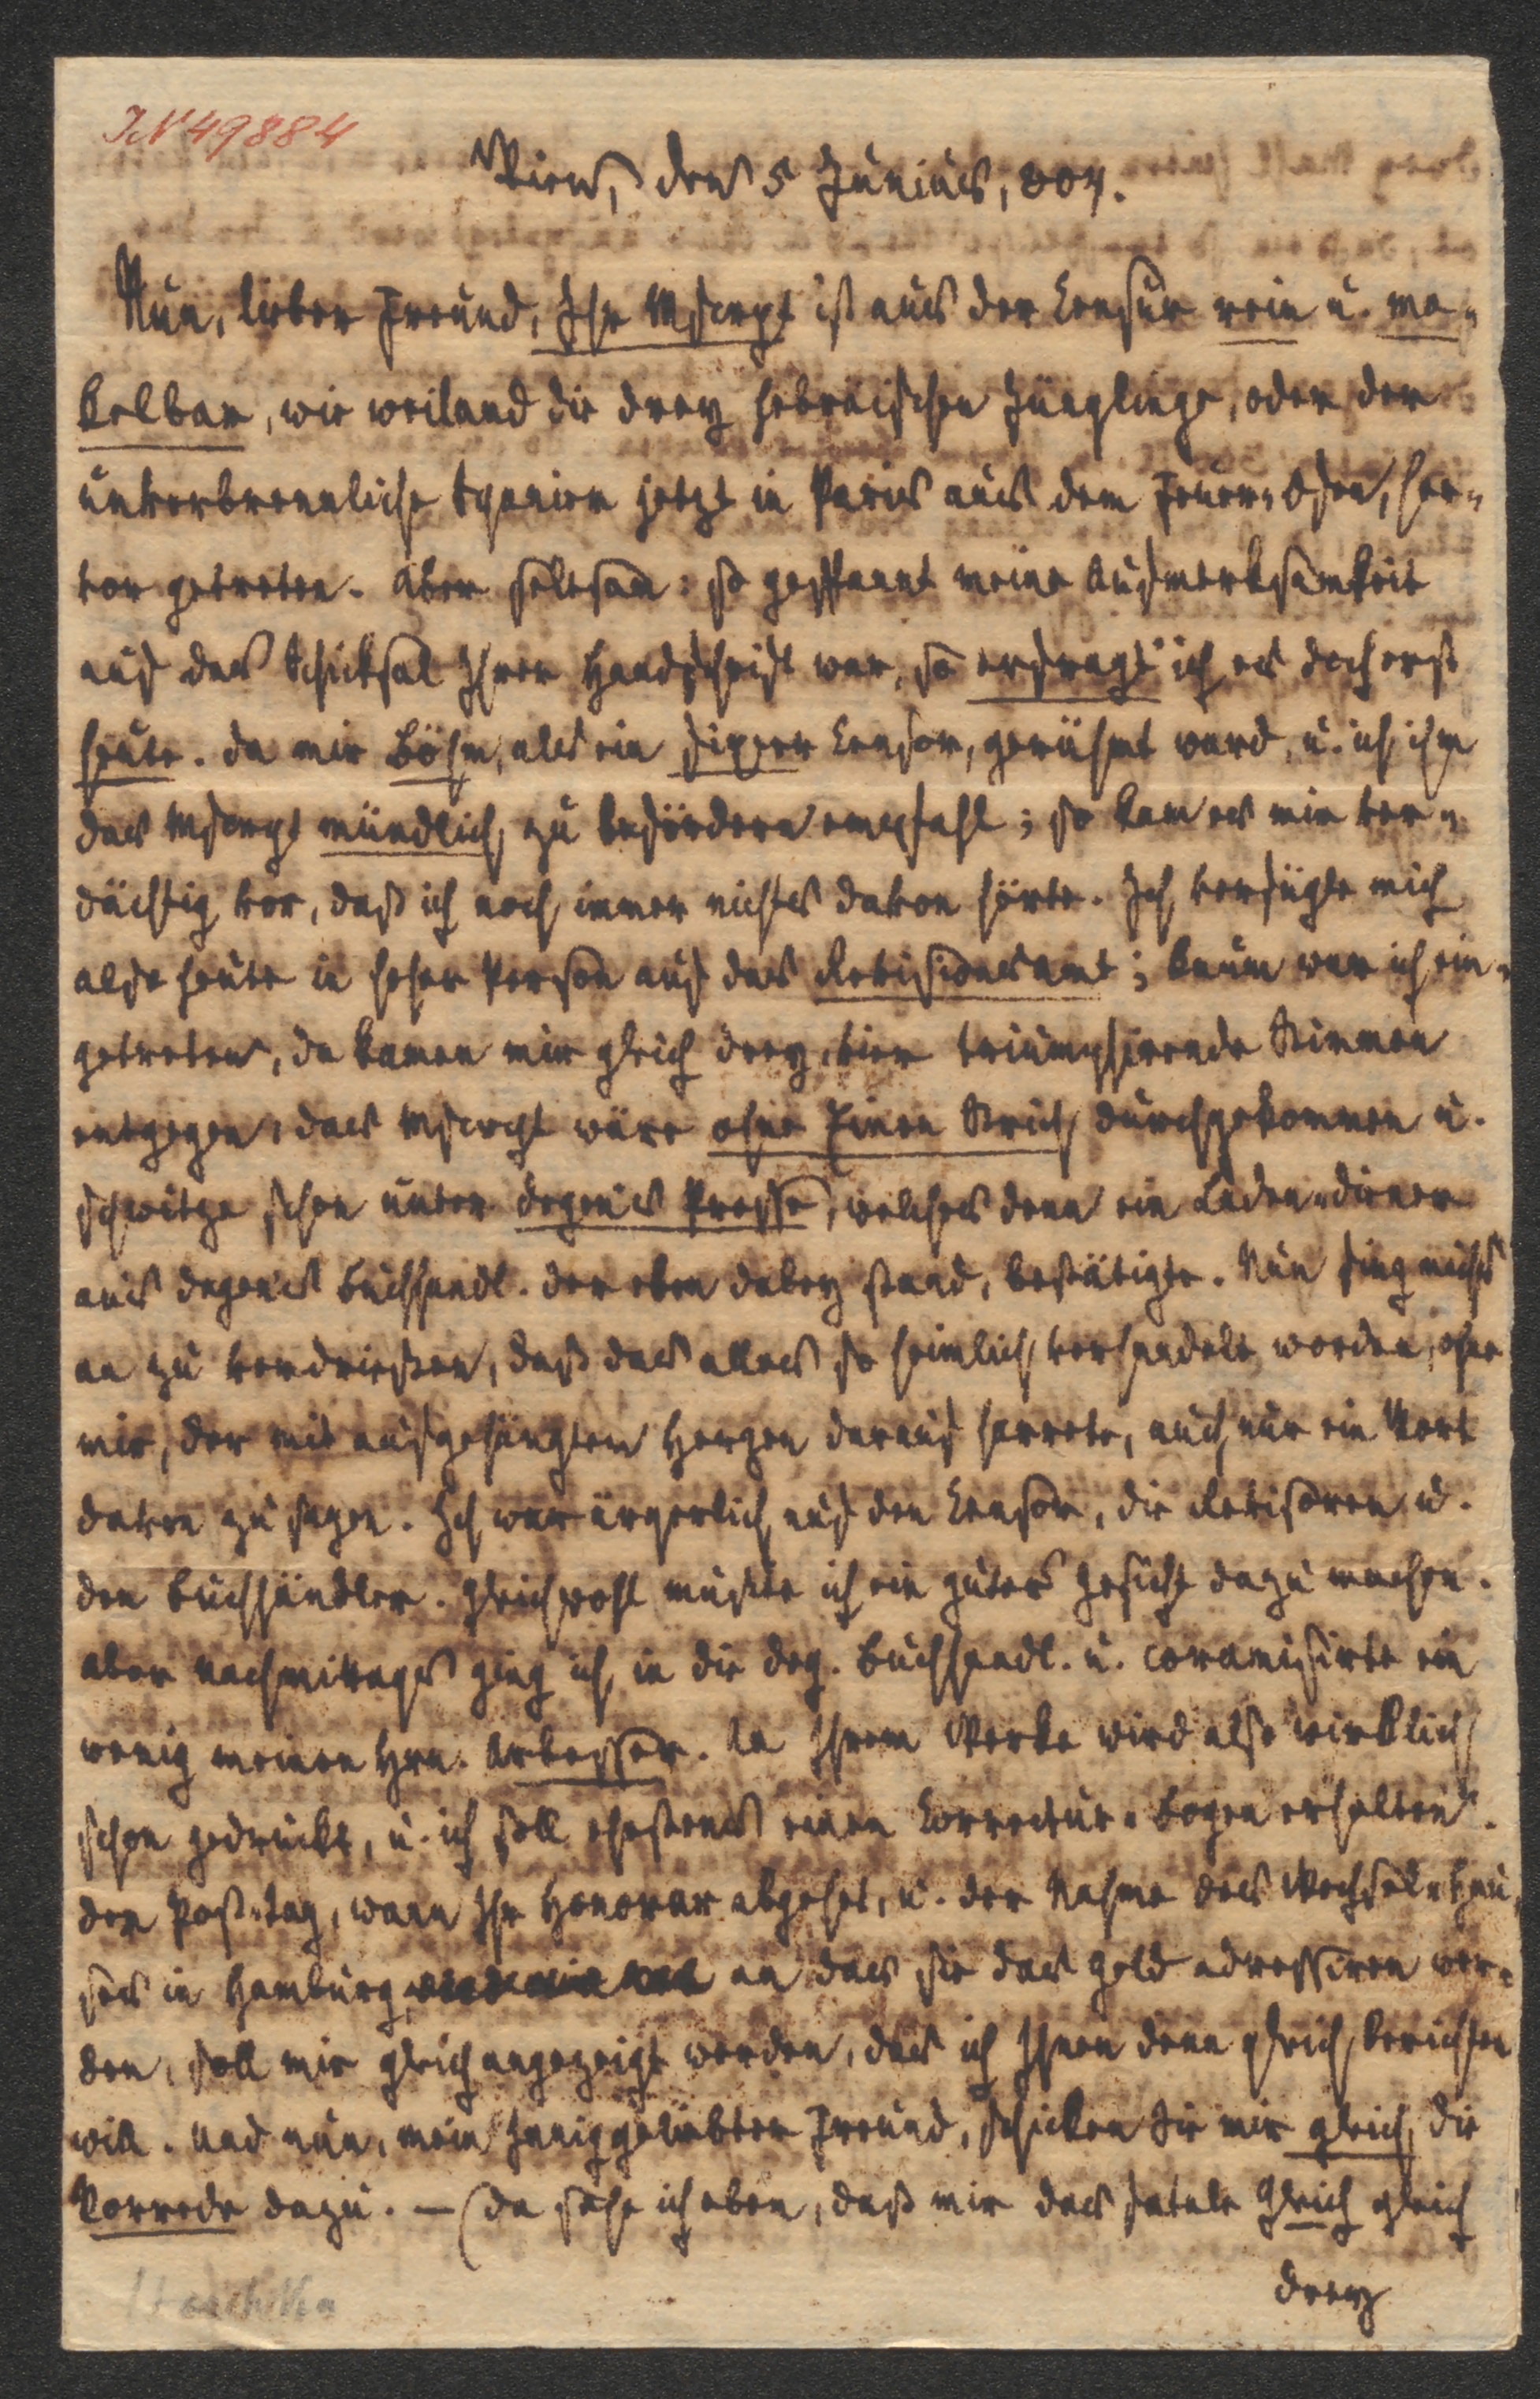 IN 49884
Wien, den 5 Junius, 807.
Nun, lieber Freund, Ihr Mscrpt ist aus der Censur rein u. ma-
kelbar, wie weiland die drey hebräischen Jünglinge, oder der
unverbrennliche Spanier jetzt in Paris aus dem Feuer-Ofen, her-
vor getreten. Aber seltsam: so gespannt meine Aufmerksamkeit
auf das Schicksal Ihrer Handschrift war, so erfragt' ich es doch erst
heute. Da mir Böhm, als ein fixer Censor, gerühmt ward, u. ich ihm
das Mscrpt mündlich zu befördern empfahl; so kam es mir ver-
dächtig vor, daß ich noch immer nichts davon hörte. Ich verfügte mich
also heute in hoher Person auf das Revisionsamt; kaum war ich ein-
getreten, da kamen mir gleich drey, vier triumphirende Stimmen
entgegen: das Mscrpt wäre ohne Einen Strich durchgekommen u.
schwitze schon unter Degen's Presse, welches denn ein Ladendiener
aus Degen's Buchhandl. der eben dabey stand, bestätigte. Nun fing mich's
an zu verdrießen, daß das alles so heimlich verhandelt worden, ohne
mir, der mit aufgehängten Herzen darauf harrete, auch nur ein Wort
davon zu sagen. Ich war ärgerlich auf den Censor, die Revisoren u.
den Buchhändler. Gleichwohl mußte ich ein gutes Gesicht dazu machen.
Aber Nachmittags ging ich in die Deg. Buchhandl. u. coramisirte ein
wenig meinen Hrn. Arbesser. An Ihrem Werke wird also wirklich
schon gedruckt, u. ich soll ehestens einen Correctur-Bogen erhalten.
Den Post-Tag, wann Ihr Honorar abgehet, u. der Nahme des Wechsel-Hau-
ses in Hamburg, an das sie das Geld adressiren wer-
den, soll mir gleich angezeigt werden, das ich Ihnen denn gleich berichten
will. Und nun, mein Inniggeliebter Freund, schicken Sie mir gleich die
Vorrede dazu. — (Da sehe ich eben, daß mir das fatale Gleich gleich
drey